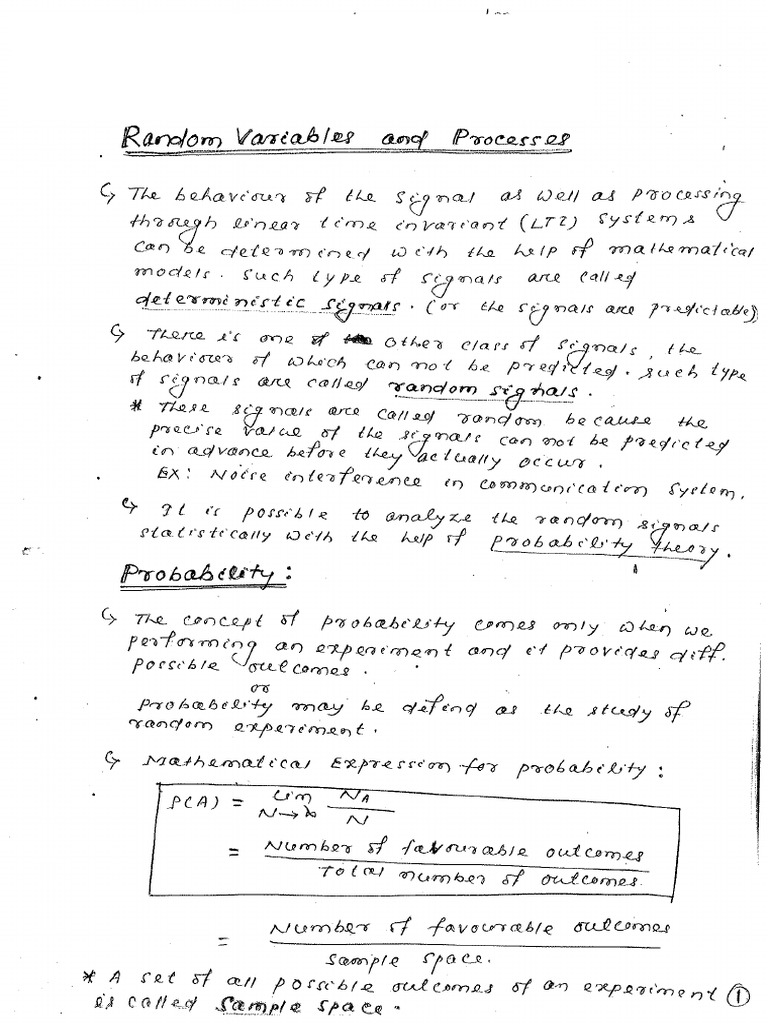 Random Variables and Processes
↪ The behaviour of the signal as well as processing
through linear time invariant (LTI) systems
can be determined with the help of mathematical
models. Such type of signals are called
deterministic signals. (or the signals are predictable)
↪ There is one other class of signals, the
behaviour of which can not be predicted. Such type
of signals are called random signals.
* These signals are called random because the
precise value of the signals can not be predicted
in advance before they actually occur.
EX: Noise interference in communication system.
↪ It is possible to analyze the random signals
statistically with the help of probability theory.
Probability:
↪ The concept of probability comes only when we
performing an experiment and it provides diff.
possible outcomes.
or
Probability may be defind as the study of
random experiment.
↪ Mathematical Expression for probability:
P(A) = Lim N→∞ N_A / N
= Number of favourable outcomes / Total number of outcomes
= Number of favourable outcomes / Sample space.
* A set of all possible outcomes of an experiment ①
is called sample space.